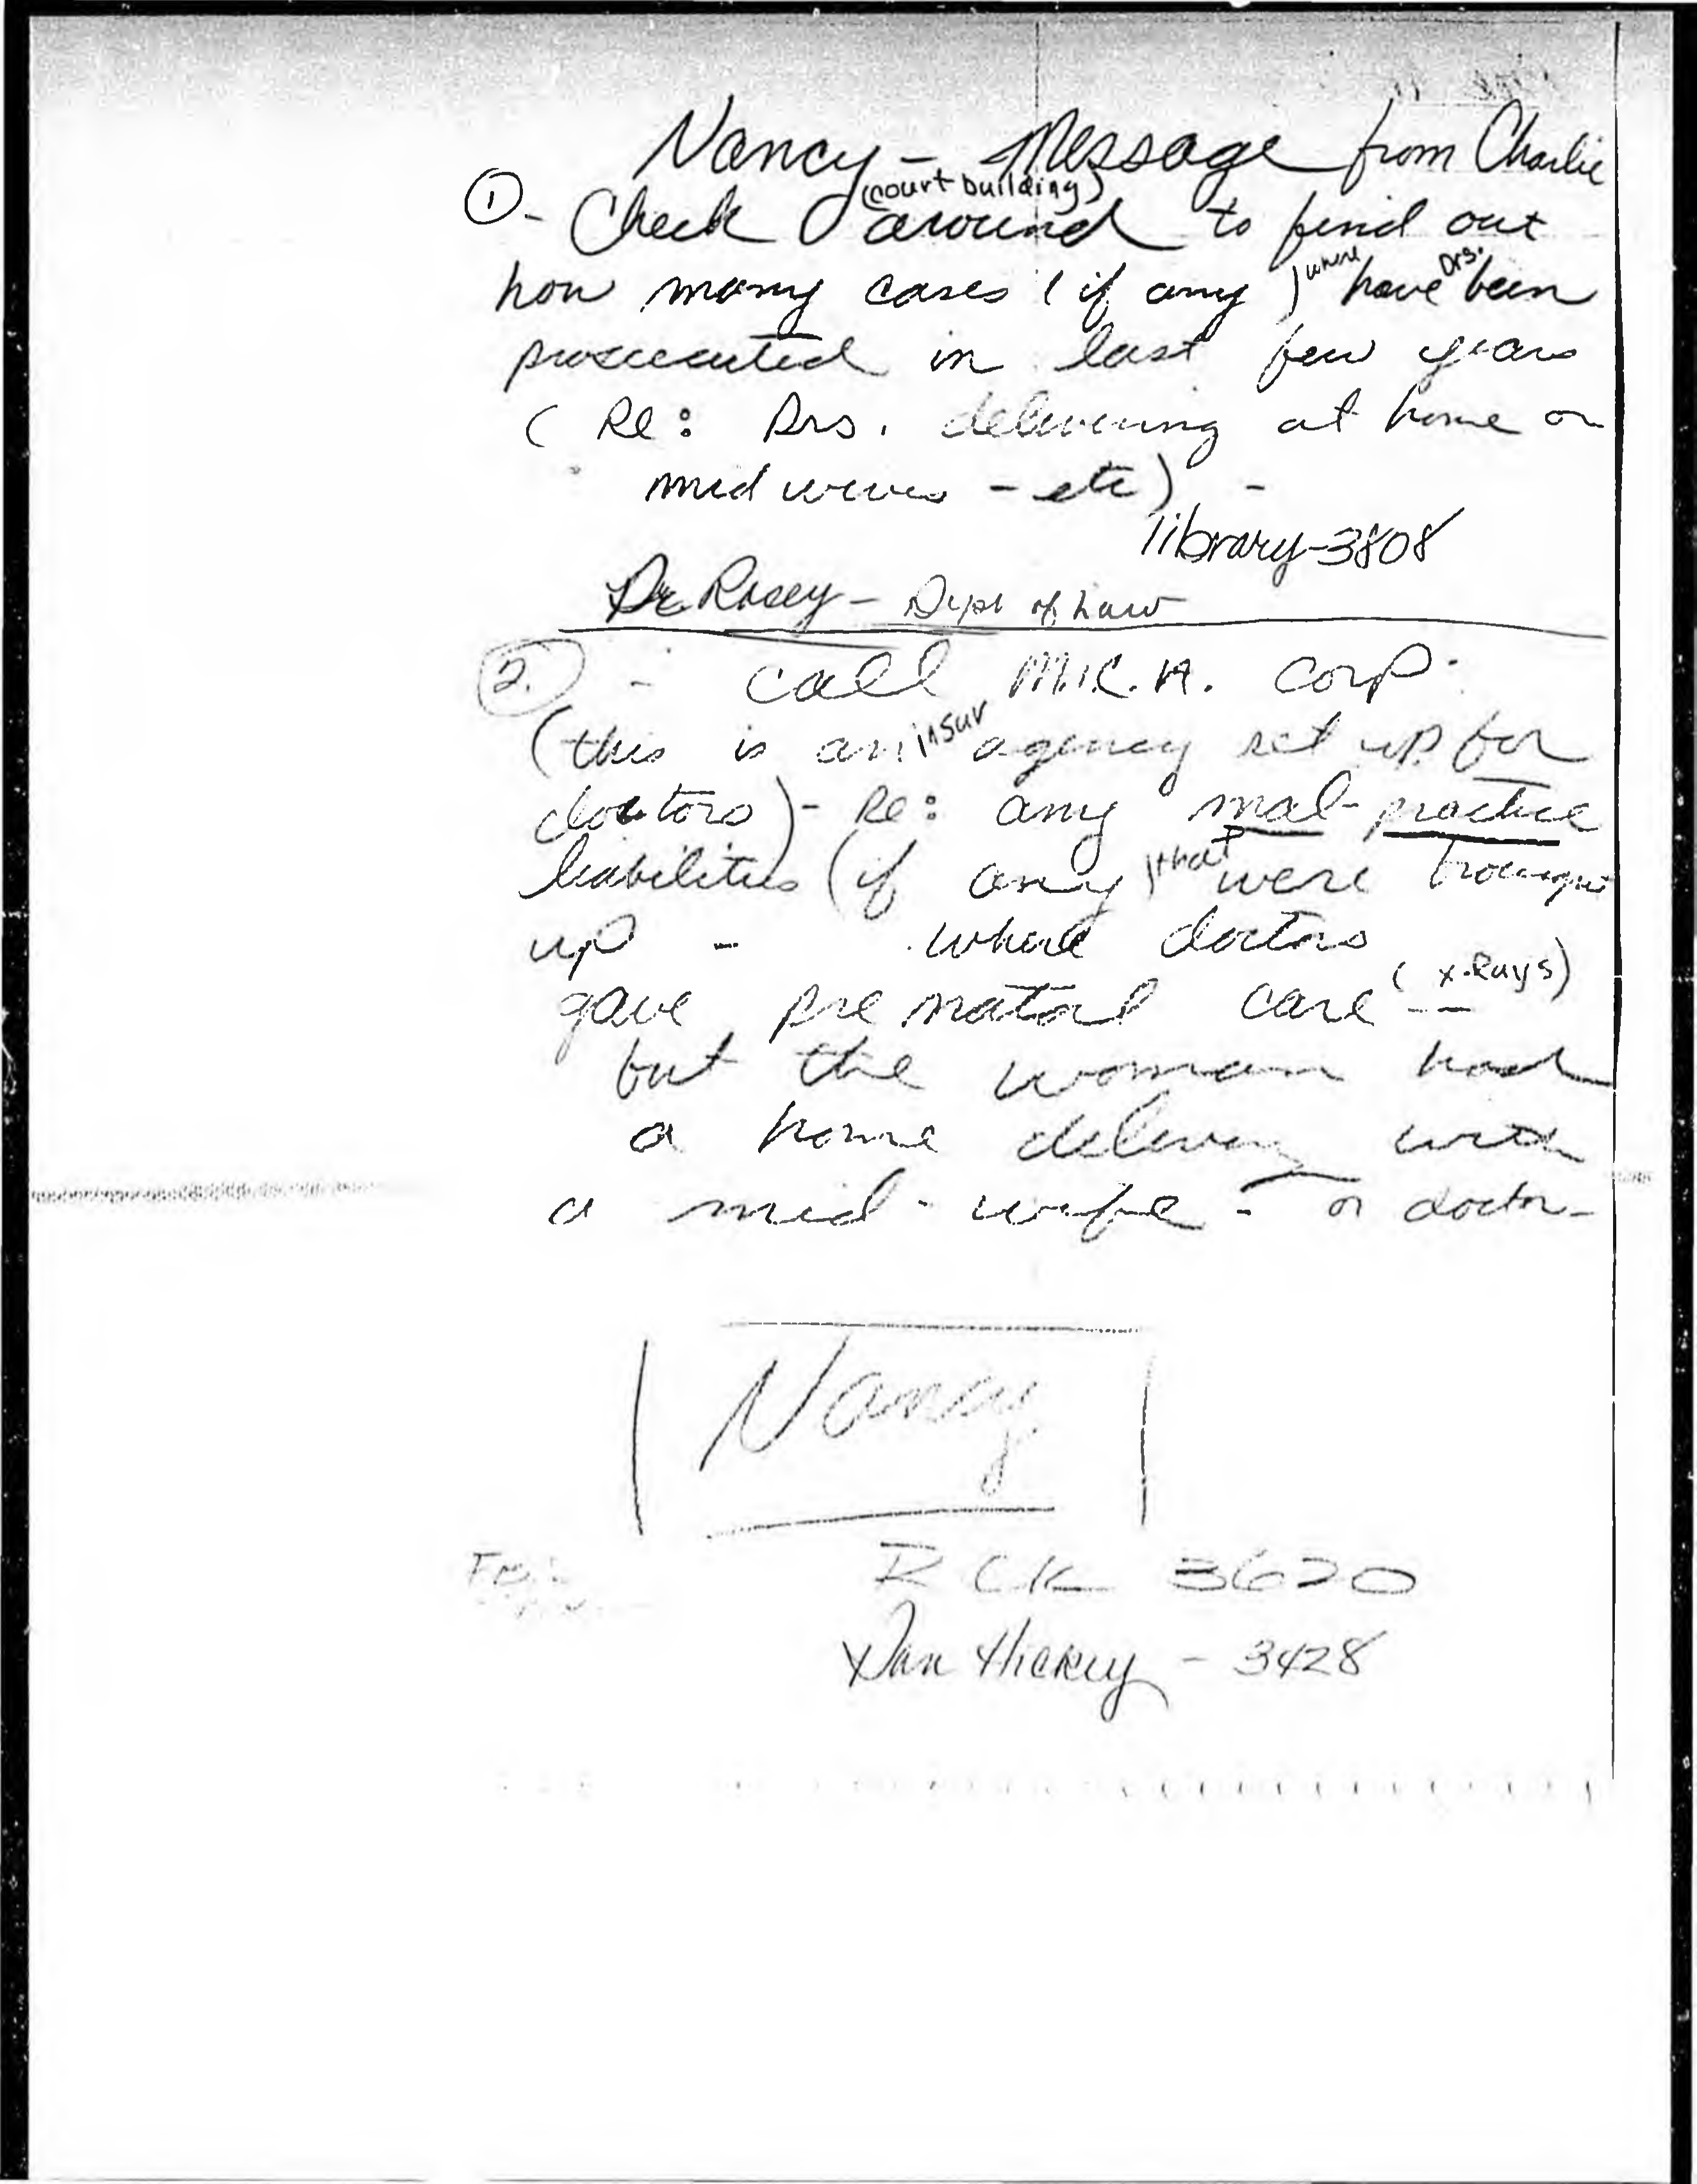 Nancy - Message from Charlie
① - Check (court building) around to find out
how many cases (if any) where have Drs. been
prosecuted in last few years
( Re: Drs. delivering at home or
midwives - etc) -
library-3808
Dr. Rosey - Dept of Law
2. - call M.I.C.A. Corp.
(this is an insur agency set up for
doctors) - Re: any mal-practice
liabilities (if any) that were brought
up - where doctors
gave prenatal care (x-Rays) --
but the woman had
a home delivery with
a mid-wife - or doctor -
Nancy
RCK 3620
Dan Hickey - 3428